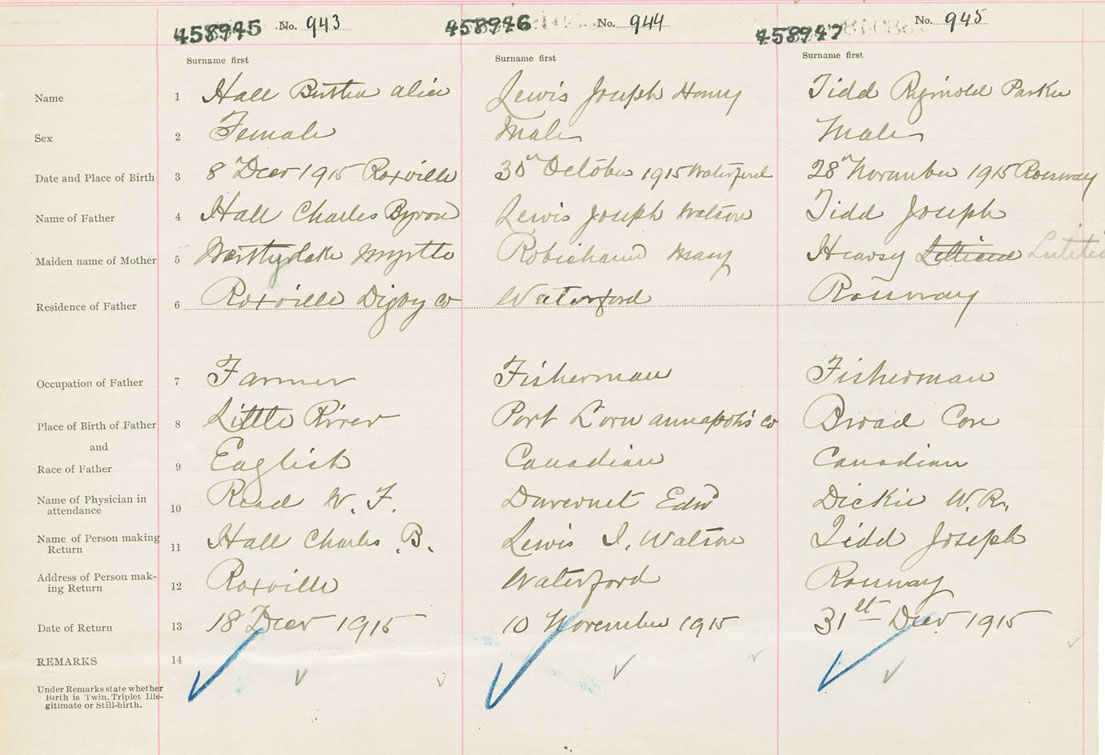 458945 No. 943 458946 No. 944 458947 No. 945
Surname first Surname first Surname first
Name 1 Hall Bertha alice Lewis Joseph Henry Tidd Reginold Parker
Sex 2 Female Male Male
Date and Place of Birth 3 8 Decr 1915 Roxville 30th October 1915 Waterford 28th November 1915 Rossway
Name of Father 4 Hall Charles Byron Lewis Joseph Watson Tidd Joseph
Maiden name of Mother 5 Myrtle Robichaud Mary Hersey Lillian
Residence of Father 6 Roxville Digby co Waterford Rossway
Occupation of Father 7 Farmer Fisherman Fisherman
Place of Birth of Father 8 Little River Port Lorn annapolis co Broad Cove
and
Race of Father 9 English Canadian Canadian
Name of Physician in
attendance 10 Read W. F. Duvernet Edw Dickie W.R.
Name of Person making
Return 11 Hall Charles B. Lewis J. Watson Tidd Joseph
Address of Person mak-
ing Return 12 Roxville Waterford Rossway
Date of Return 13 18 Decr 1915 10 November 1915 31st Decr 1915
REMARKS 14
Under Remarks state whether
Birth is Twin, Triplet Ille-
gitimate or Still-birth.